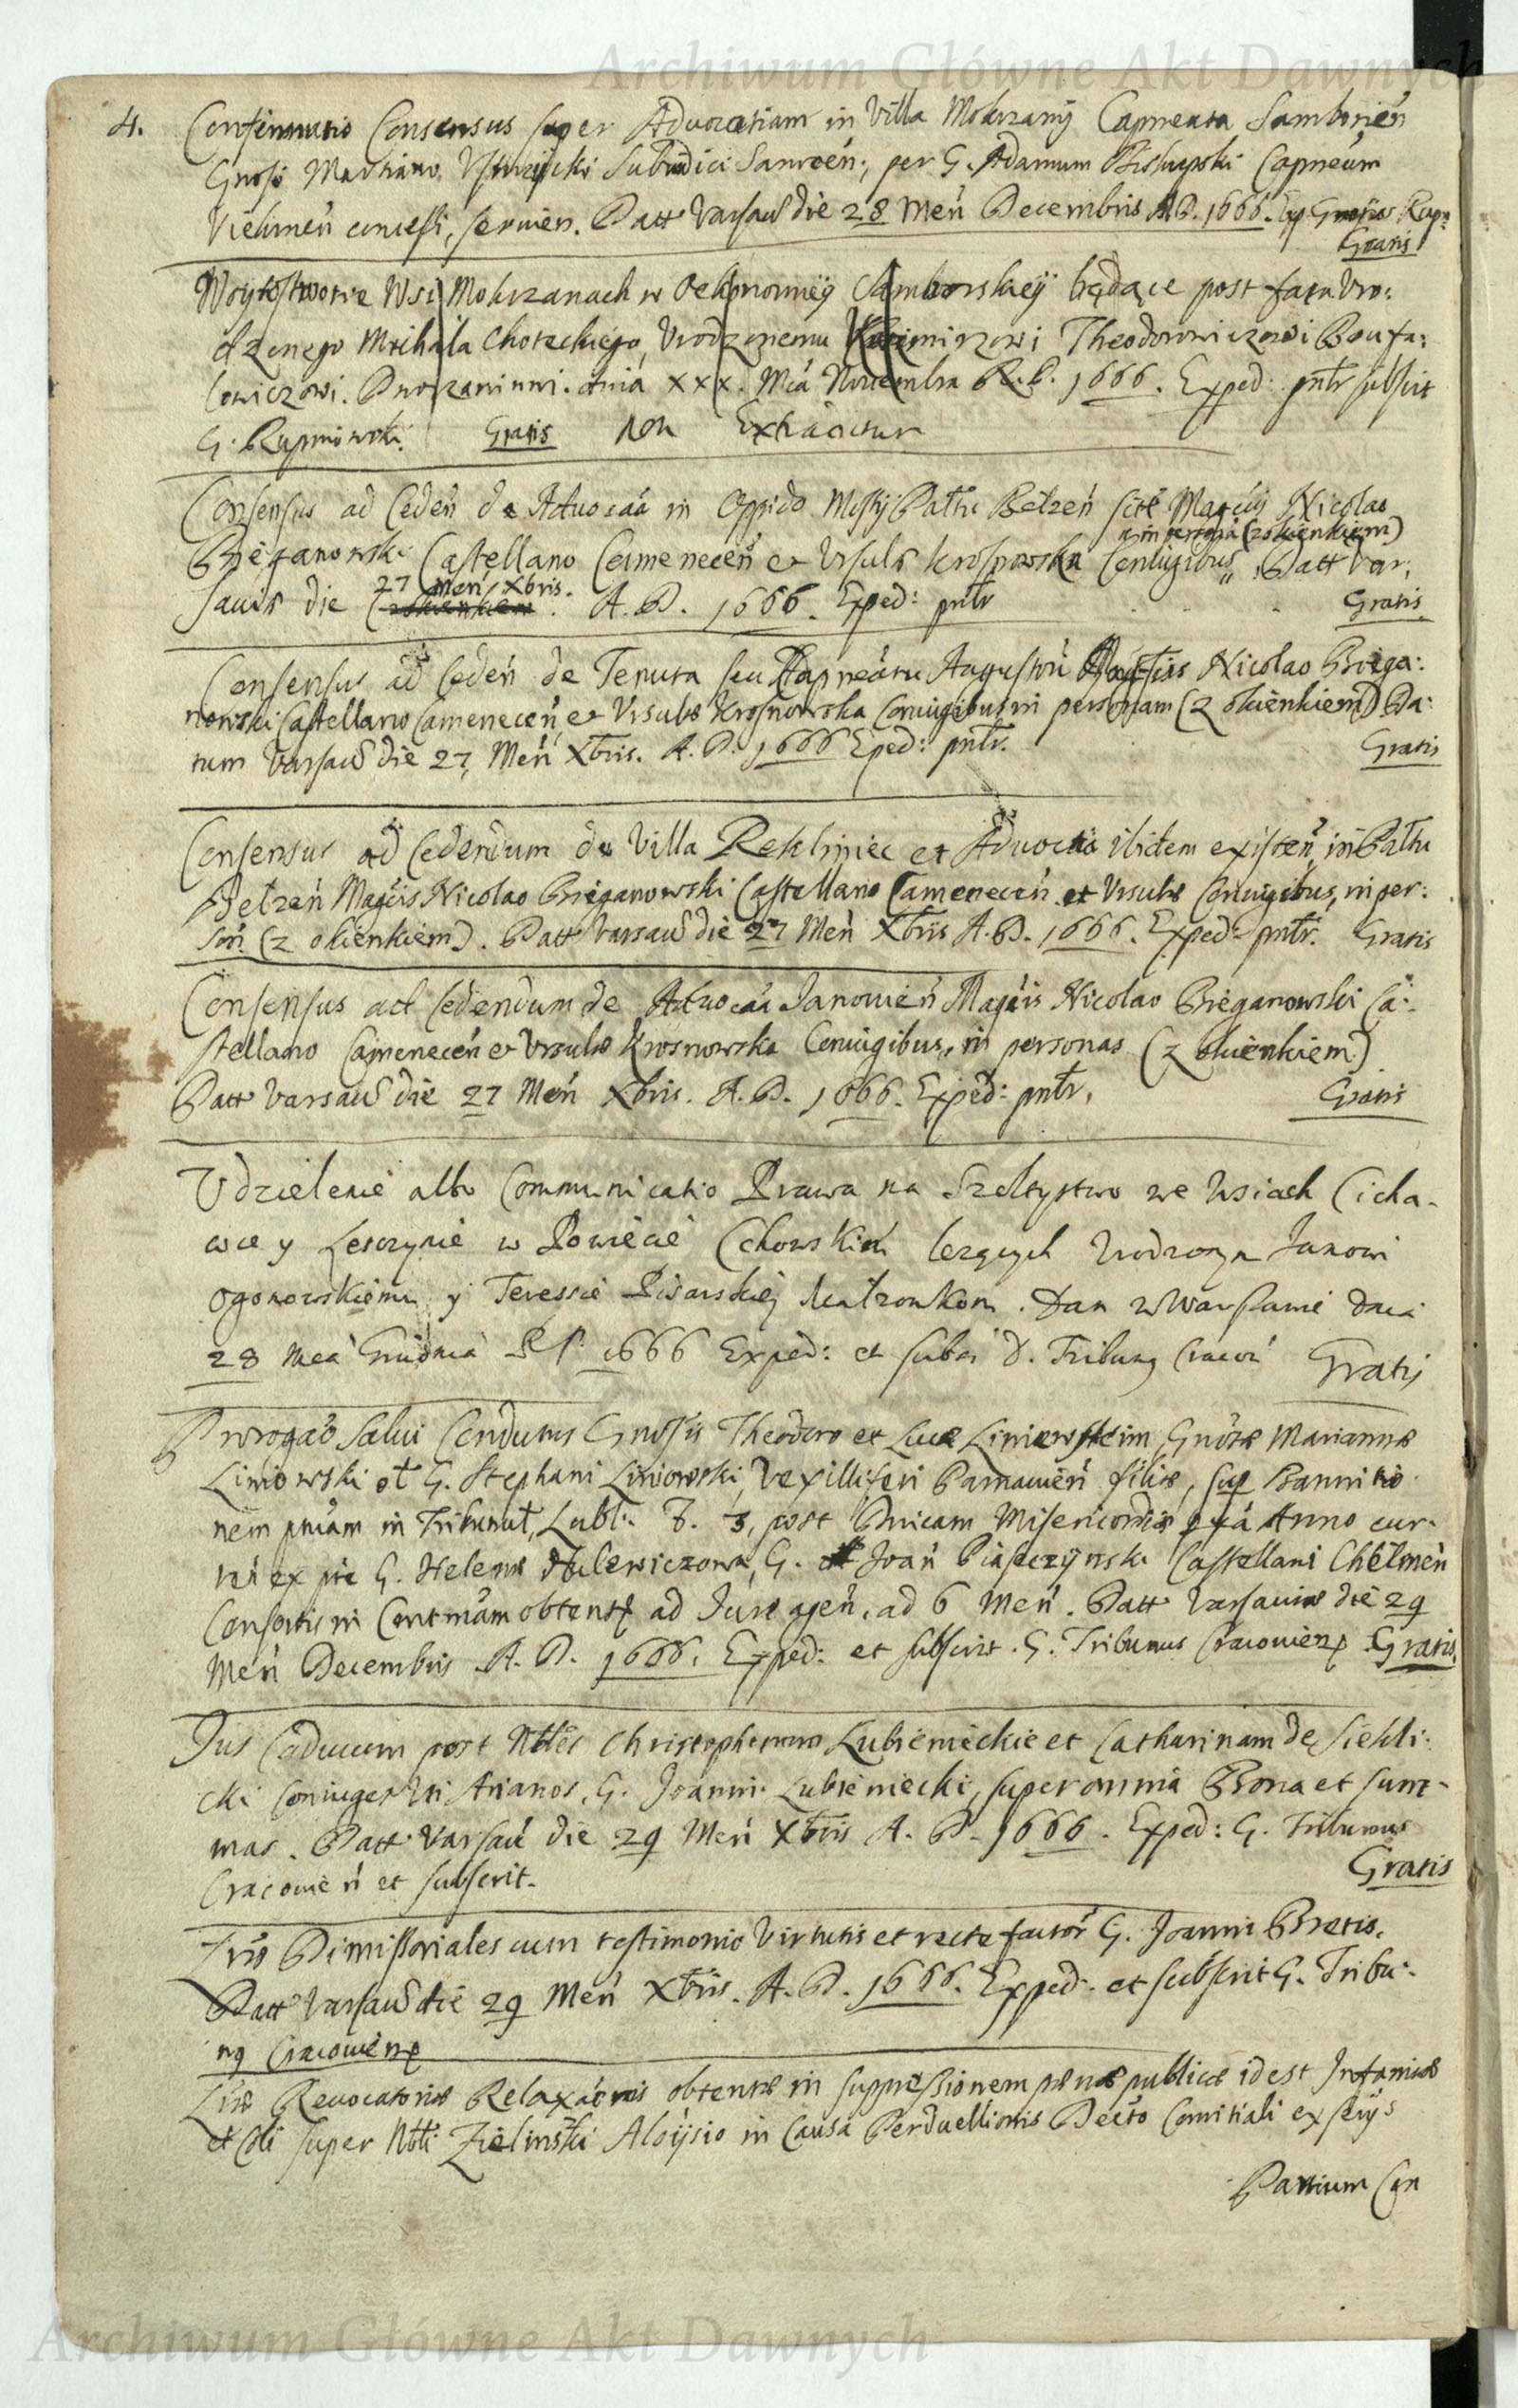 Archiwum Główne Akt Dawnych
4. Confirmatio Consensus super Advocatiam in Villa Mokrzany Capneata Samborien
Gnoso Martiano Ustrzycki Subiudici Sanocen, per G. Adamum Biskupski Capneum
Vielunen concessi, servien. Datt Varsav die 28 Men Decembris A.D. 1666. Exp. Gnosus Rup:
Gratis
Woytostwo we Wsi Mokrzanach w Oekonomiey Samborskiey będące post fata Uro:
dzonego Michała Choteckiego, Urodzonemu Kazimirzowi Theodorowiczowi Boufa:
łowiczowi. Dworzaninowi. dnia XXX. Mca Novembra R. P. 1666. Exped: pntr subscrit
G. Rupniowski. Gratis non Extraditur
Consensus ad Ceden de Advocaa in Oppido Msty Pattu Betzen Magcis Nicolao
in personą (z okienkiem)
Bieganowski Castellano Camenecen et Ursula Krosnowska Coniugibus, Datt Var:
27 Men Xbris.
savis die (z okienkiem. A. D. 1666. Exped: pntr Gratis
Consensus ad Ceden de Tenuta seu Capneatu Augustow Magcis Nicolao Biega:
nowski Castellano Camenecen, et Ursula Krosnowska Coniugibus in personam (z okienkiem) Da:
tum Varsav die 27, Men Xbris. A. D. 1666 Exped: pntr. Gratis
Consensus ad Cedendum de Villa Rekliniec et Advocatia ibidem existen, in Pattu
Betzen Magcis Nicolao Bieganowski Castellano Camenecen et Ursula Coniugibus, in per:
son (z okienkiem). Datt Varsav die 27 Men Xbris A. D. 1666. Exped: pntr. Gratis
Consensus ad Cedendum de Advocaa Janovien Magcis Nicolao Bieganowski Ca:
stellano Camenecen et Ursula Krosnowska Coniugibus, in personas (z okienkiem)
Datt Varsav die 27 Men Xbris. A. D. 1666. Exped: pntr, Gratis
Udzielenie albo Communicatio Prawa na Szołtystwo we Wsiach Cicha-
wce y Leszczynie w Powiecie Cchowskim lezących Urodzonym Janowi
Ogonowskiemu y Teressie Pisarskiey Małzonkom. Dan w Warszawie dnia
28 Mca Grudnia R P. 1666 Exped: et subs: d. Tribung Cracov Gratis
Prorogao Salvi Conductus Gnosis Theodoro et Luca Liniewskim, Gnosæ Mariannæ
Liniowski ot G. Stephani Liniowski, Vexilliferi filiæ, sup Bannitio
nem pnam in Tribunal, Lubl. F. 3, post Dnicam Misericordiæ Anno cur-
ren ex pte G. Helenæ G. Joan Piaseczynski Castellani Chełmen
Consortis in Contmam obtentæ ad Jure agen, ad 6 Men. Datt Varsaviæ die 29
Men Decembris A. D. 1666. Exped: et subscrit. G. Tribunus Cracovien Gratis.
Jus Caducum post Nobles Christophorum Lubieniecki et Catharinam de Siekli:
cki Coniuges uti Arianos, G. Joanni Lubieniecki, super omnia Bona et sum-
mas. Datt Varsav die 29 Men Xbris A. D. 1666. Exped: G. Tribunus
Cracovien et subscrit. Gratis
Lræ Dimissoriales cum testimonio Virtutis et recte factor G. Joanni Bretis.
Datt Varsav die 29 Men Xbris. A. D. 1666. Exped: et subscrit G. Tribu:
ng Cracovien
Lræ Revocatoriæ Relaxaonis obtentæ in suppressionem pænæ publicæ id est Infamiæ
et Coli super Nobli Zielinski Aloysio in Causa Perduellionis Decto Comitiali ex serys
Partium Con
Archiwum Główne Akt Dawnych